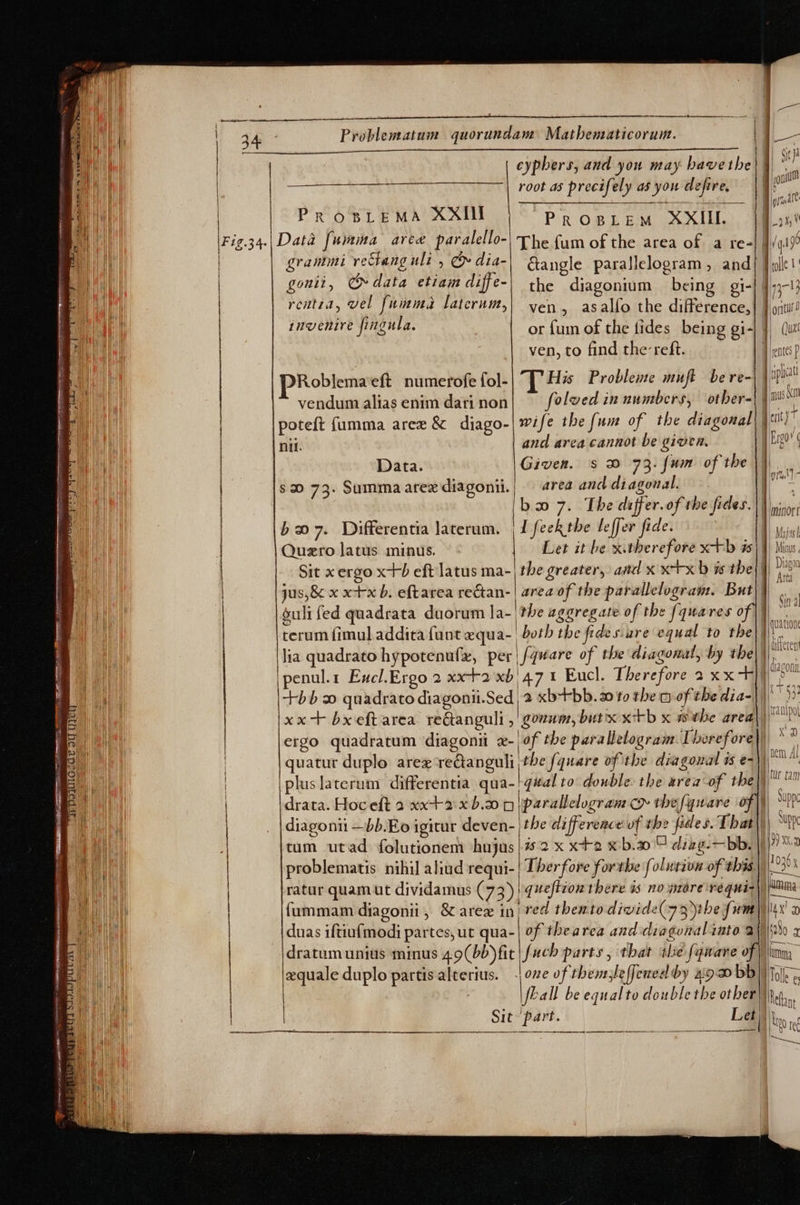 34 Problematum quorundam Mathematicorum.
PROBLEMA XXIII
Fig.34. Datâ ſumma areæ paralello-
grammi rectanguli, & dia-
gonii, & data etiam diffe-
rentia, vel ſummâ laterum,
invenire ſingula.
PRoblema eſt numeroſe ſol-
vendum alias enim dari non
poteſt ſumma areæ & diago-
nii.
Data.
s ꝏ 73. Summa areæ diagonii.
b ꝏ 7. Differentia laterum.
Quæro latus minus.
Sit x ergo x+b eſt latus ma-
jus, & x x+x b. eſt area rectan-
guli ſed quadrata duorum la-
terum ſimul addita ſunt æqua-
lia quadrato hypotenuſæ, per
penul.1 Eucl. Ergo 2 xx+2 xb
+bb ꝏ quadrato diagonii. Sed
xx+ bx eſt area rectanguli,
ergo quadratum diagonii æ-
quatur duplo areæ rectanguli
plus laterum differentia qua-
drata. Hoc eſt 2 xx+2 x b. ꝏ □
diagonii —bb. Eo igitur deven-
tum ut ad ſolutionem hujus
problematis nihil aliud requi-
ratur quam ut dividamus (73)
ſummam diagonii, & areæ in
duas iſtiuſmodi partes, ut qua-
dratum unius minus 49(bb) fit
æquale duplo partis alterius.
Sit
cyphers, and you may have the
root as preciſely as you deſire.
PROBLEM XXIII.
The ſum of the area of a re-
ctangle parallelogram, and
the diagonium being gi-
ven, as alſo the difference,
or ſum of the ſides being gi-
ven, to find the reſt.
THis Probleme muſt be re-
ſolved in numbers, other-
wiſe the ſum of the diagonal
and area cannot be given.
Given. s ꝏ 73. ſum of the
area and diagonal.
b ꝏ 7. The differ. of the ſides.
I ſeek the leſſer ſide.
Let it be x. therefore x+b is
the greater, and x x+x b is the
area of the parallelogram. But
the aggregate of the ſquares of
both the ſides are equal to the
ſquare of the diagonal, by the
47 1 Eucl. Therefore 2 x x+
2 xb+bb. ꝏ to the □ of the dia-
gonum, but x x+b x is the area
of the parallelogram. Therefore
the ſquare of the diagonal is e-
qual to double the area of the
parallelogram & the ſquare of
the difference of the ſides. That
is 2 x x+2 x b. ꝏ □ diag.—bb.
Therfore for the ſolution of this
queſtion there is no more requi-
red then to divide (73) the ſum
of the area and diagonal into 2
ſuch parts, that the ſquare of
one of them, leſſened by 49 ꝏ bb
ſhall be equal to double the other
part.
Let